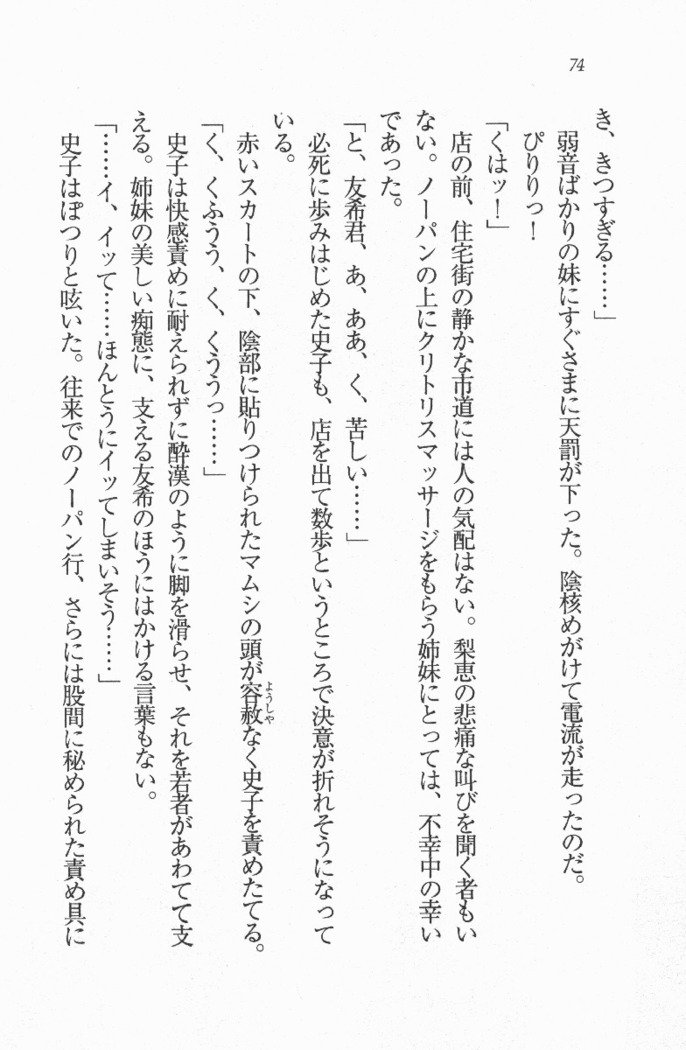 74
き、きつすぎる……」
弱音ばかりの妹にすぐさまに天罰が下った。陰核めがけて電流が走ったのだ。
ぴりりっ！
「くはッ！」
店の前、住宅街の静かな市道には人の気配はない。梨恵の悲痛な叫びを聞く者もい
ない。ノーパンの上にクリトリスマッサージをもらう姉妹にとっては、不幸中の幸い
であった。
「と、友希君、あ、ああ、く、苦しい……」
必死に歩みはじめた史子も、店を出て数歩というところで決意が折れそうになって
いる。
赤いスカートの下、陰部に貼りつけられたマムシの頭が容赦なく史子を責めたてる。
ようしゃ
「く、くふうう、く、くううっ……」
史子は快感責めに耐えられずに酔漢のように脚を滑らせ、それを若者があわてて支
える。姉妹の美しい痴態に、支える友希のほうにはかける言葉もない。
「……イ、イッて……ほんとうにイッてしまいそう……」
史子はぽつりと呟いた。往来でのノーパン行、さらには股間に秘められた責め具に